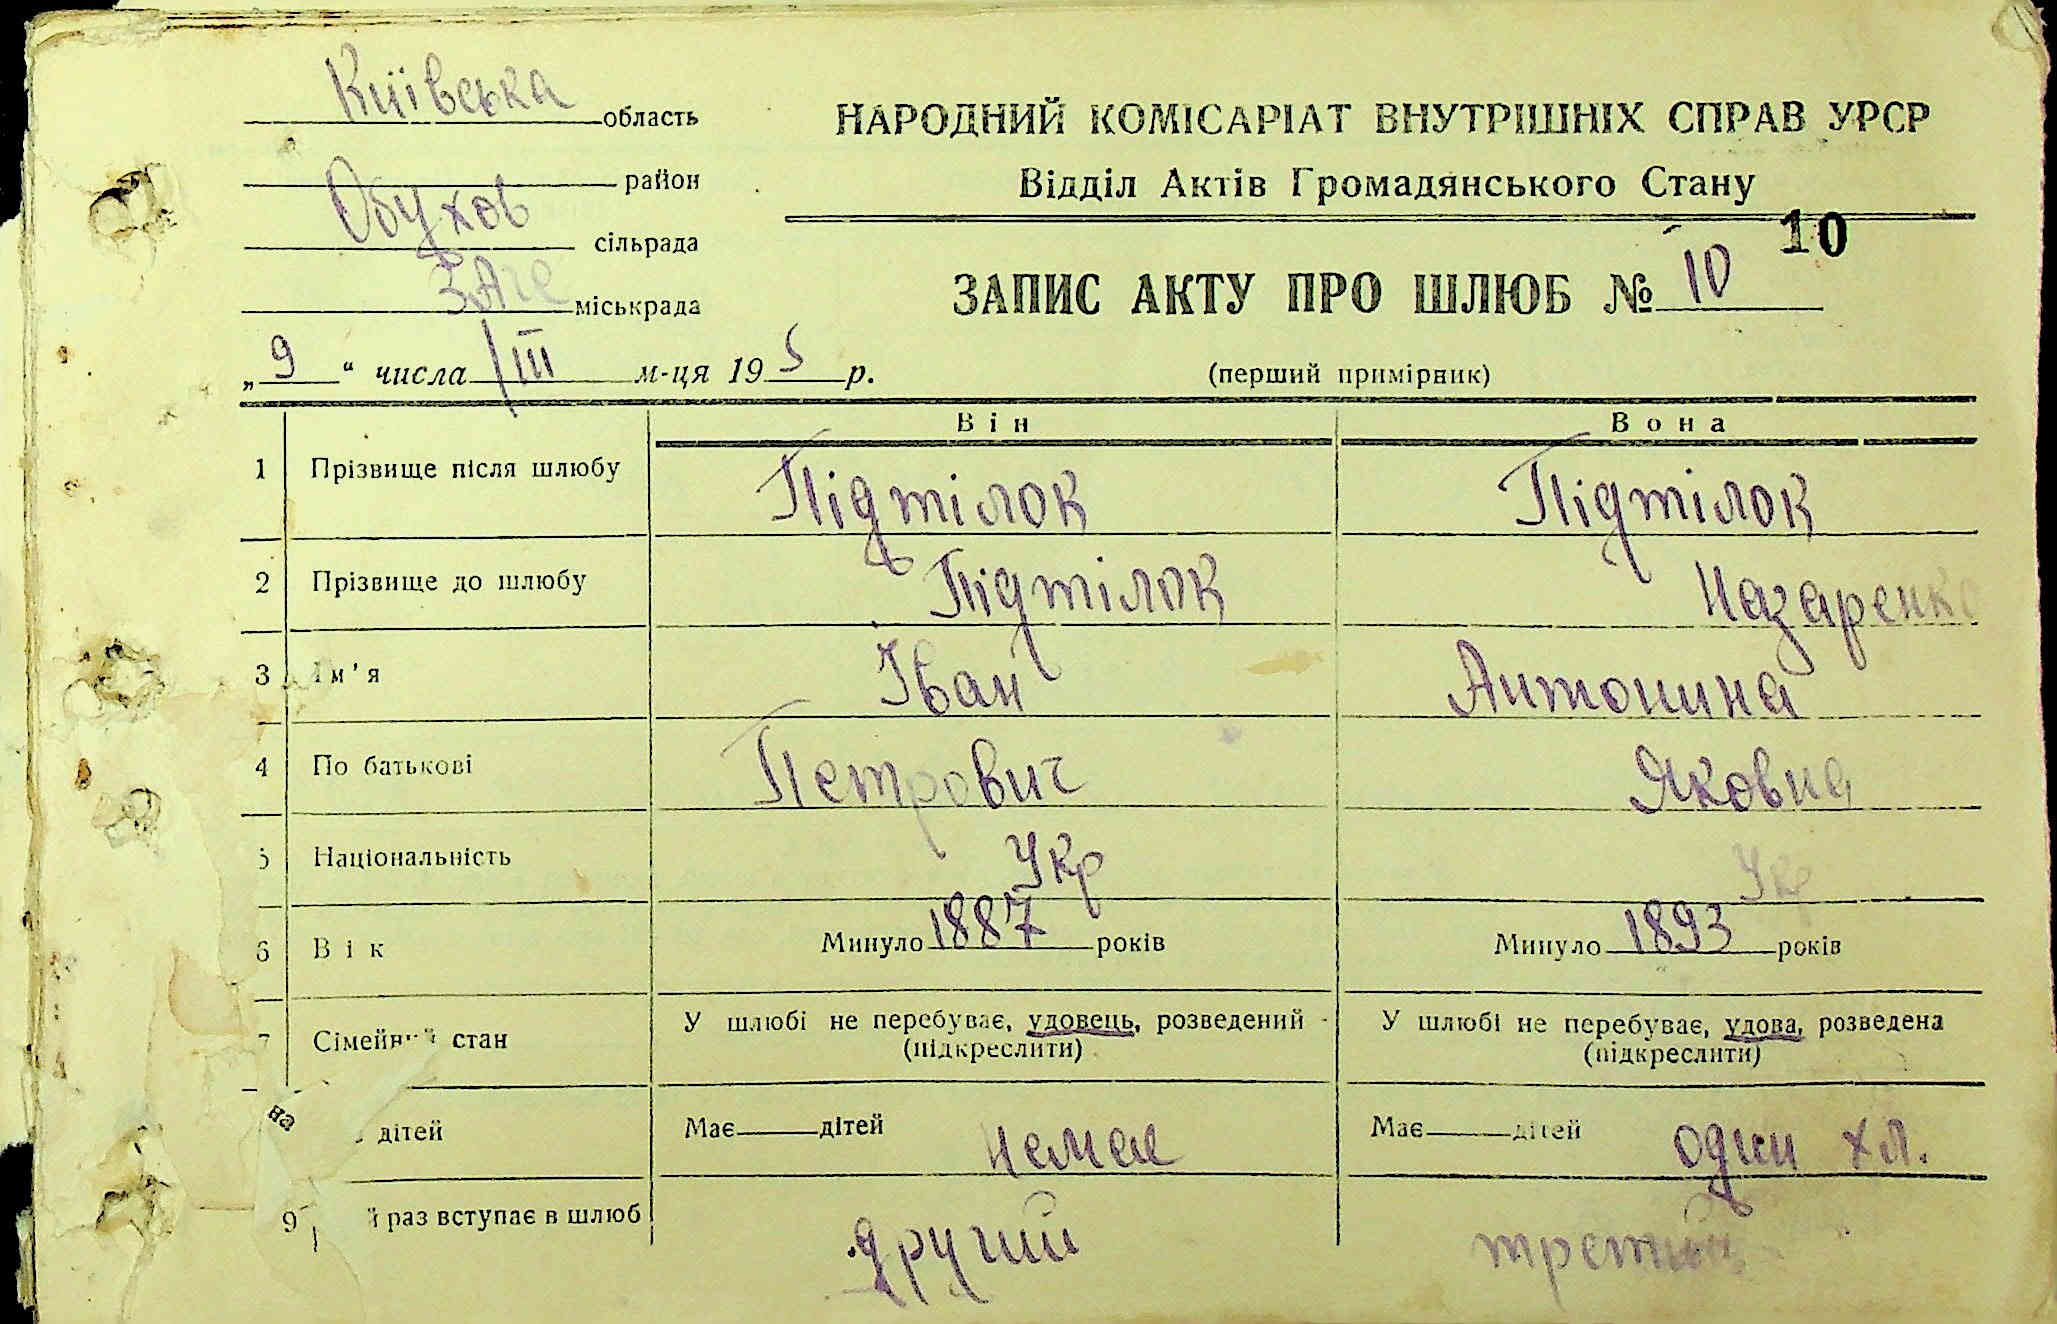 Київська область
НАРОДНИЙ КОМІСАРІАТ ВНУТРІШНІХ СПРАВ УРСР
Відділ Актів Громадянського Стану
район
Обухов
сільрада
10
ЗАГС
міськрада
ЗАПИС АКТУ ПРО ШЛЮБ № 10
„ 9 “ числа III м-ця 195 р.
(перший примірник)
Він Вона
1 Прізвище після шлюбу Підтілок Підтілок
2 Прізвище до шлюбу Підтілок Назаренко
3 Ім'я Іван Антонина
4 По батькові Петрович Яковна
5 Національність Укр Укр
6 Вік Минуло 1887 років Минуло 1893 років
7 Сімейний стан У шлюбі не перебуває, удовець, розведений У шлюбі не перебуває, удова, розведена
(підкреслити) (підкреслити)
на
дітей Має дітей немає Має дітей один хл.
9 й раз вступає в шлюб другий третий